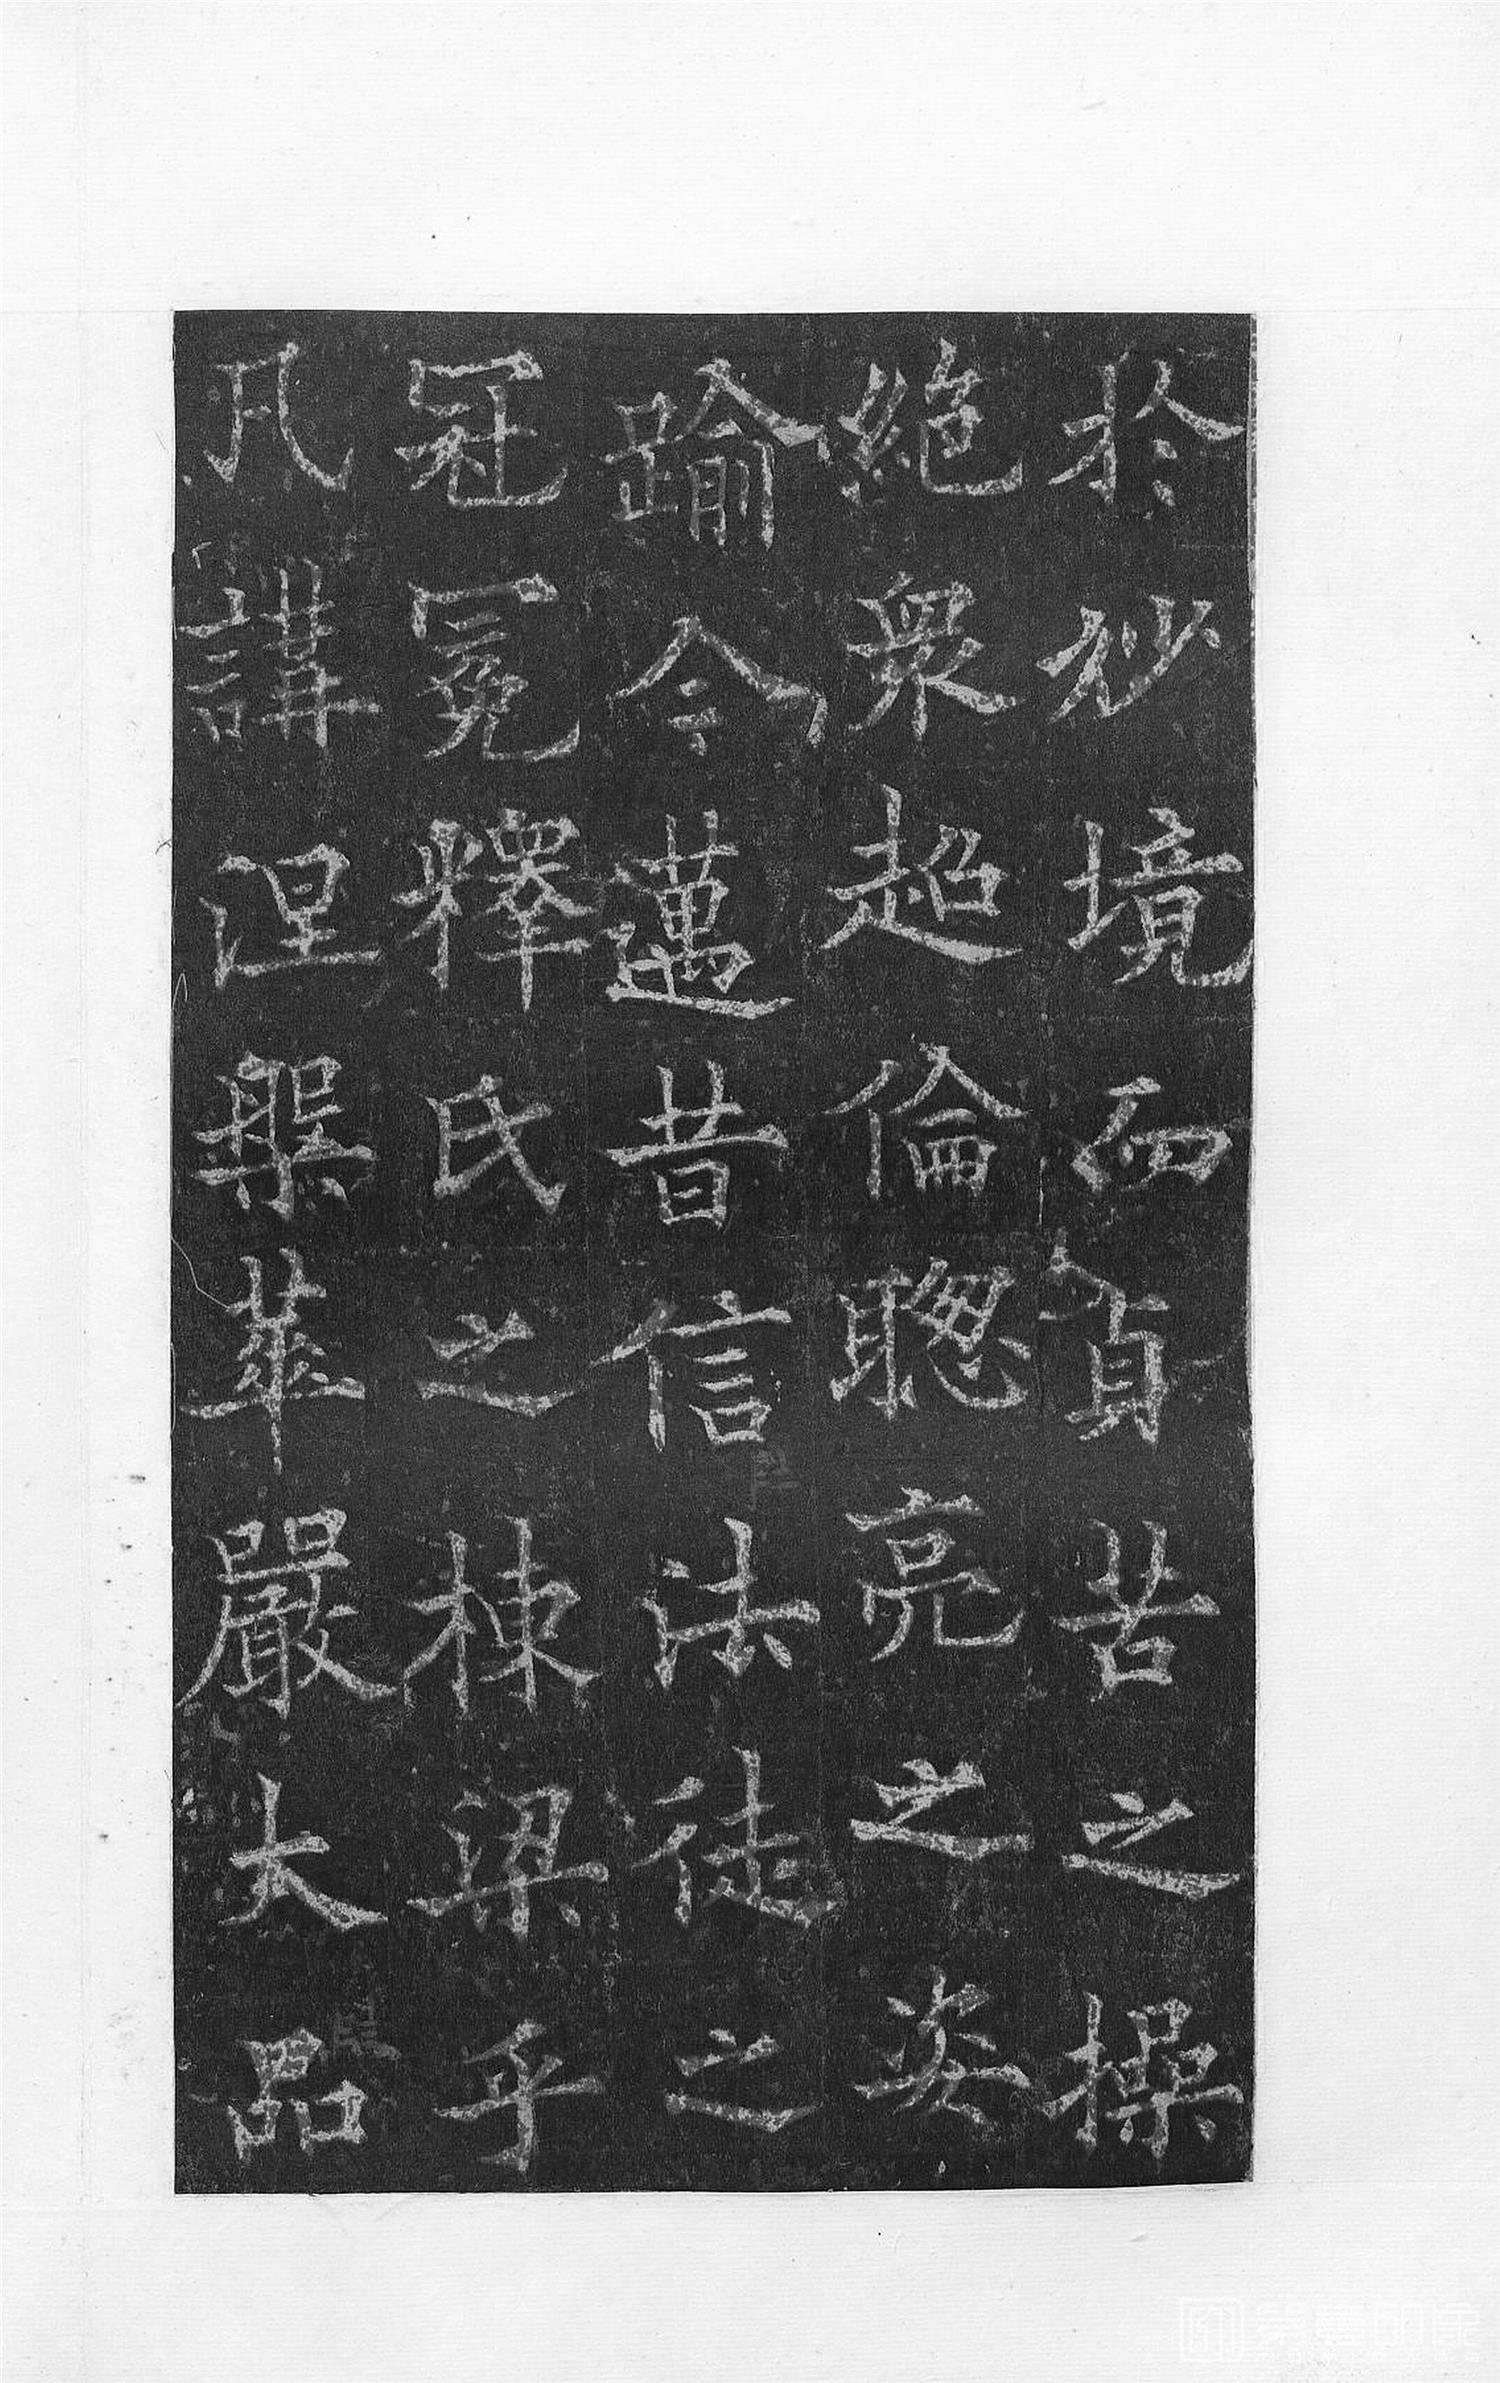 於妙境而貞苦之操
絕衆超倫聰亮之姿
踰今邁昔信法徒之
冠冕釋氏之棟梁乎
凡講涅槃華嚴大品